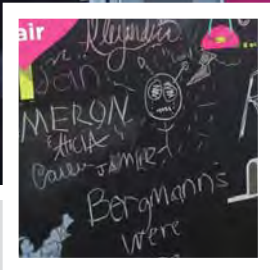 air
Alejandra
Jan
MERON
& ALICIA
Caleu JAMAR
BergMann's
were